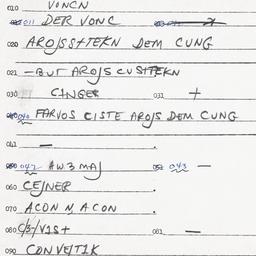 010 VONCN
011 DER VONC
020 AROJSSTTEKN DEM CUNG
021 -BUT AROJS CUSTTEKN
030 CINGER 031 +
040 FARVOS CISTE AROJS DEM CUNG
041 -
042 AW3MAJ 043 -
060 CEJNER
070 ACON N ACON
080 C/3-/V1S+ 081 -
090 CONVEJTIK